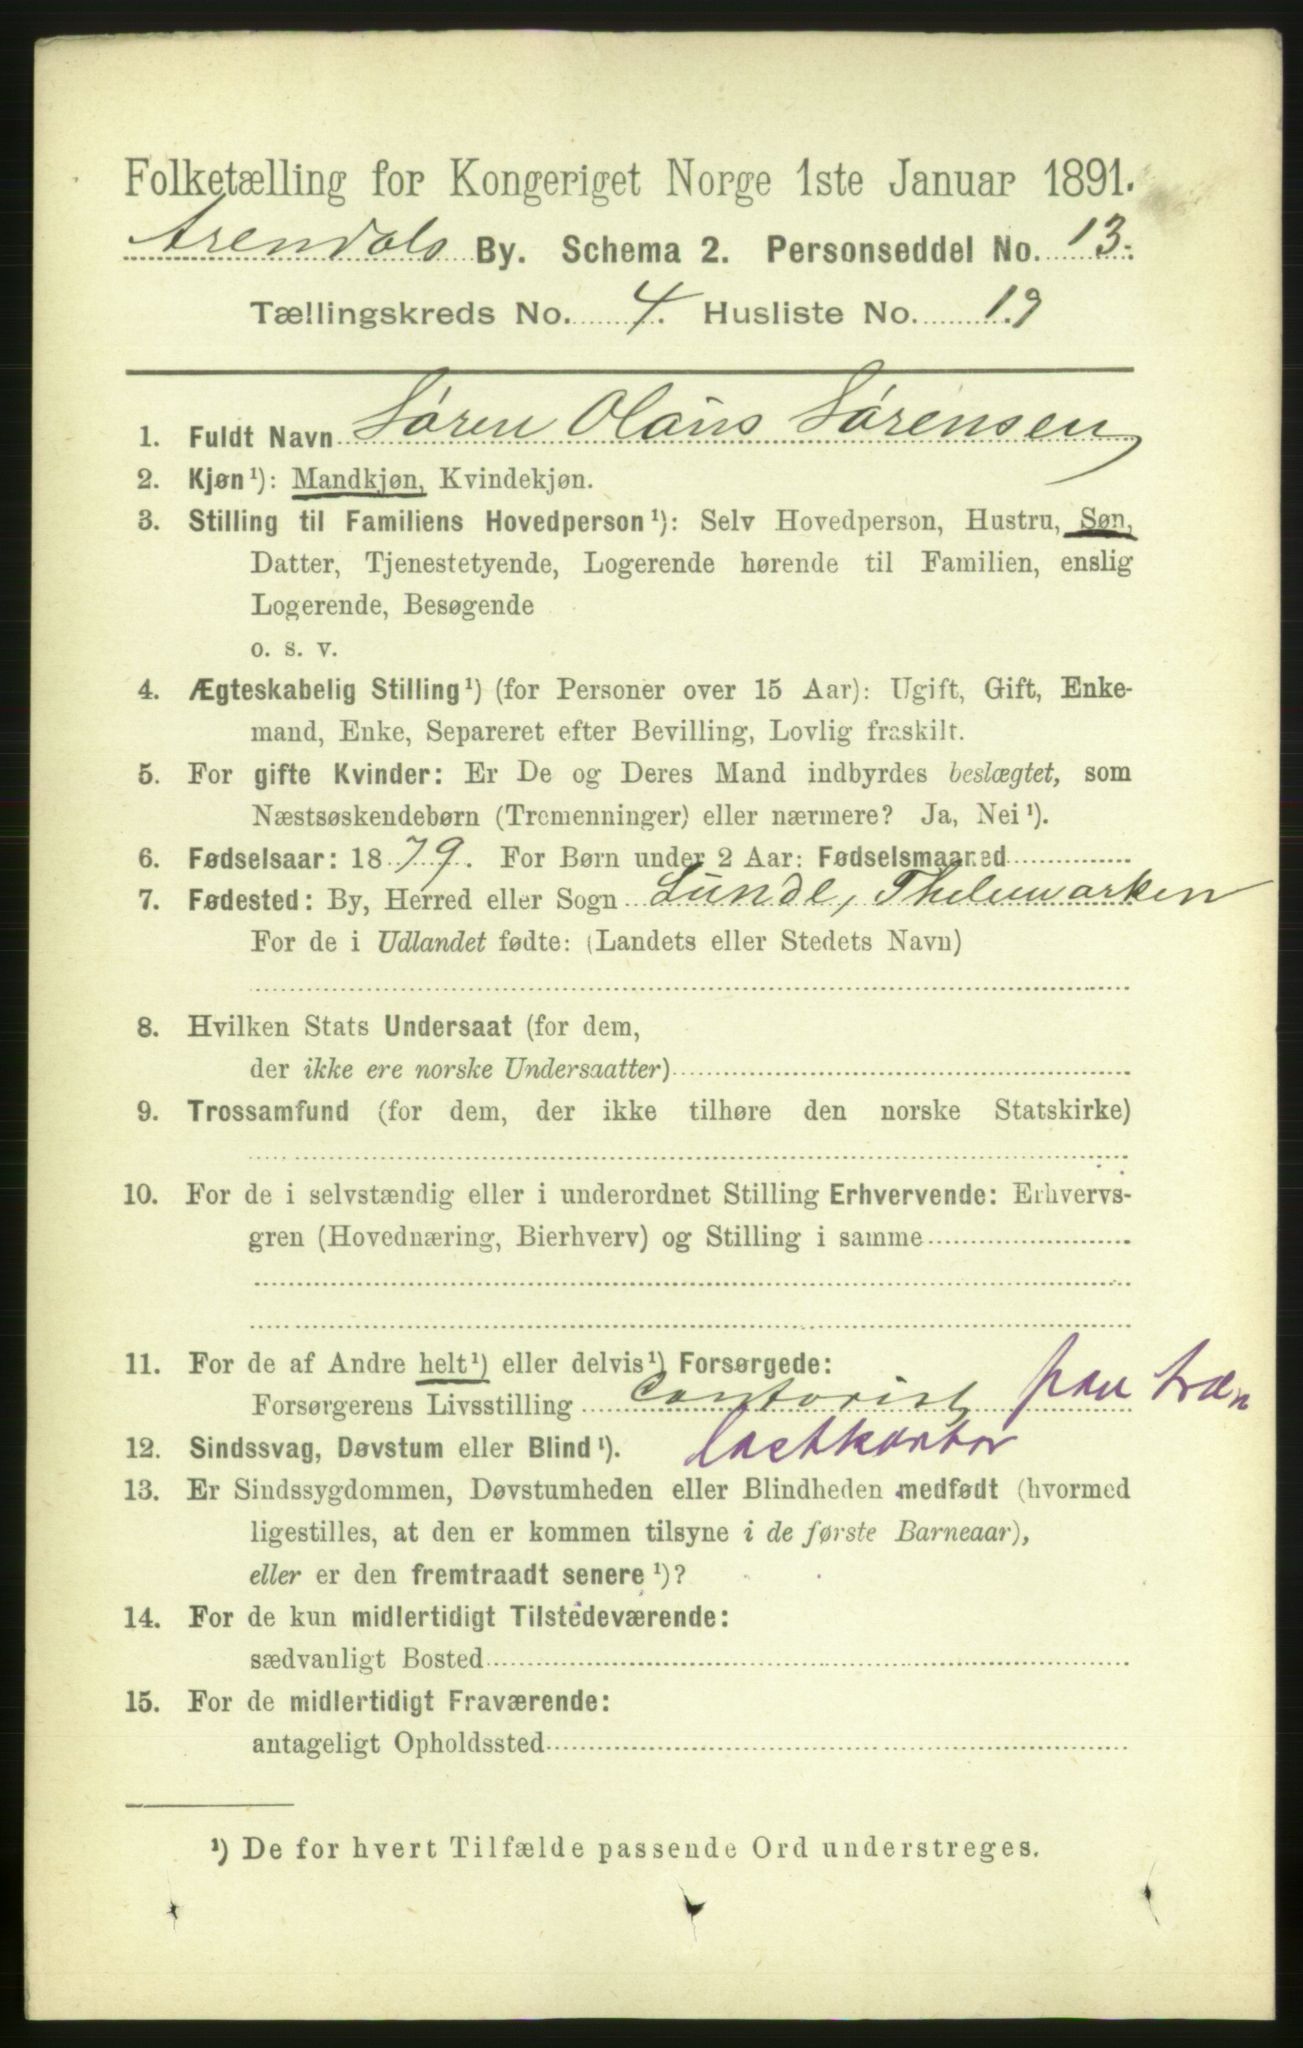 Folketælling for Kongeriget Norge 1ste Januar 1891.
Arendals By. Schema 2. Personseddel No. 13.
Tællingskreds No. 4. Husliste No. 19
1. Fuldt Navn Søren Olaus Sørensen
2. Kjøn¹): Mandkjøn, Kvindekjøn.
3. Stilling til Familiens Hovedperson¹): Selv Hovedperson, Hustru, Søn,
Datter, Tjenestetyende, Logerende hørende til Familien, enslig
Logerende, Besøgende
o. s. v.
4. Ægteskabelig Stilling¹) (for Personer over 15 Aar): Ugift, Gift, Enke-
mand, Enke, Separeret efter Bevilling, Lovlig fraskilt.
5. For gifte Kvinder: Er De og Deres Mand indbyrdes beslægtet, som
Næstsøskendebørn (Tremenninger) eller nærmere? Ja, Nei¹).
6. Fødselsaar: 1879. For Børn under 2 Aar: Fødselsmaaned
7. Fødested: By, Herred eller Sogn Lunde, Thelemarken
For de i Udlandet fødte: (Landets eller Stedets Navn)
8. Hvilken Stats Undersaat (for dem,
der ikke ere norske Undersaatter)
9. Trossamfund (for dem, der ikke tilhøre den norske Statskirke)
10. For de i selvstændig eller i underordnet Stilling Erhvervende: Erhvervs-
gren (Hovednæring, Bierhverv) og Stilling i samme
11. For de af Andre helt¹) eller delvis¹) Forsørgede:
Forsørgerens Livsstilling Contorist paa træ-
12. Sindssvag, Døvstum eller Blind¹). lastkontor
13. Er Sindssygdommen, Døvstumheden eller Blindheden medfødt (hvormed
ligestilles, at den er kommen tilsyne i de første Barneaar),
eller er den fremtraadt senere¹)?
14. For de kun midlertidigt Tilstedeværende:
sædvanligt Bosted
15. For de midlertidigt Fraværende:
antageligt Opholdssted
¹) De for hvert Tilfælde passende Ord understreges.